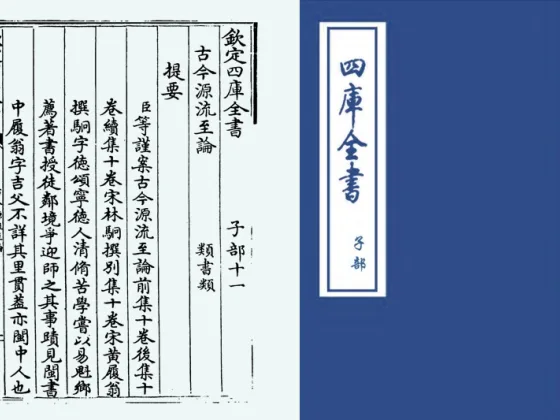 欽定四庫全書
子部十一
古今源流至論
類書類
提要
臣等謹案古今源流至論前集十卷後集十
卷續集十卷宋林駉撰別集十卷宋黃履翁
撰駉字徳頌寧徳人清脩苦學嘗以易魁鄉
薦著書授徒鄰境爭迎師之其事蹟見閩書
中履翁字吉父不詳其里貫葢亦閩中人也
四庫全書
子部